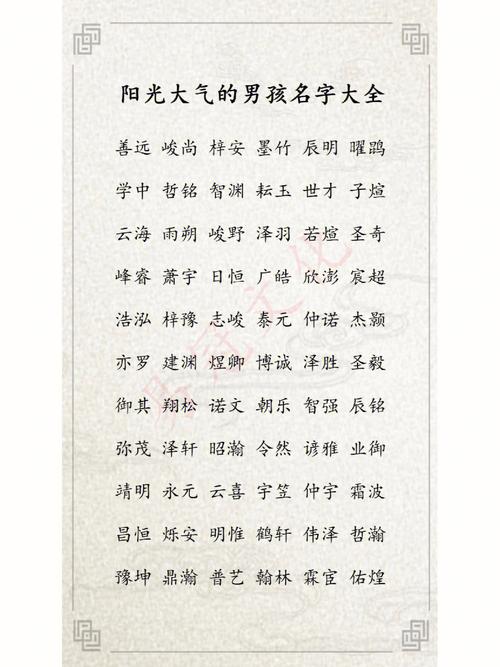 阳光大气的男孩名字大全
善远 峻尚 梓安 墨竹 辰明 曜鹍
学中 哲铭 智渊 耘玉 世才 子煊
云海 雨朔 峻野 泽羽 若煊 圣奇
峰睿 萧宇 日恒 广皓 欣澎 宸超
浩泓 梓豫 志峻 泰元 仲诺 杰颢
亦罗 建渊 煜卿 博诚 泽胜 圣毅
御其 翔松 诺文 朝乐 智强 辰铭
弥茂 泽轩 昭瀚 令然 谚雅 业御
靖明 永元 云喜 宇笠 仲宇 霜波
昌恒 烁安 明惟 鹤轩 伟泽 哲瀚
豫坤 鼎瀚 普艺 翰林 霖宦 佑煌